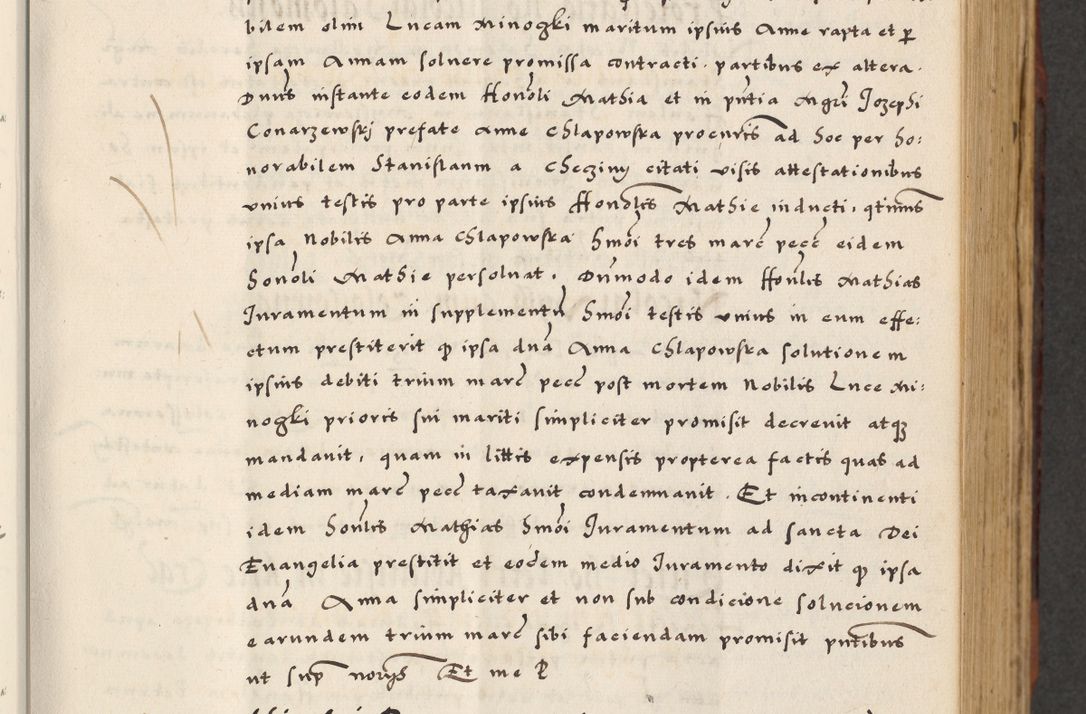 bilem olim Lucam Minogki maritum ipsius Anne rapta et p
ipsam Annam soluere promissa contracti · partibus ex altera ·
Dnus instante eodem Honoli Mathia et in pntia Mgri Jozephi
Conarzewskj prefate Anne Chlapowska procuris ad hoc per ho:
norabilem Stanislaum a Checziny citati visis attestationibus
vnius testis pro parte ipsius Honolis Mathie inducti · qtinus
ipsa Nobilis Anna Chlapowska smoi tres marc pecc eidem
honoli Mathie persoluat · Dummodo idem Honlis Mathias
Juramentum in supplementu smoi testis vnius in eum effe:
ctum prestiterit q ipsa dna Anna Chlapowska solutionem
ipsius debiti trium marc pecc post mortem Nobilis Luce Mi:
nogki prioris sui mariti simpliciter promisit decreuit atq
mandauit, quam in littis expensis propterea factis quas ad
mediam marc pecc taxauit condemnauit · Et incontinenti
idem honlis Mathias smoi Juramentum ad sancta Dei
Euangelia prestitit et eodem medio Juramento dixit q ipsa
dna Anna simpliciter et non sub condicione solucionem
earundem trium marc sibi faciendam promisit pntibus
ut sup norijs Et me P